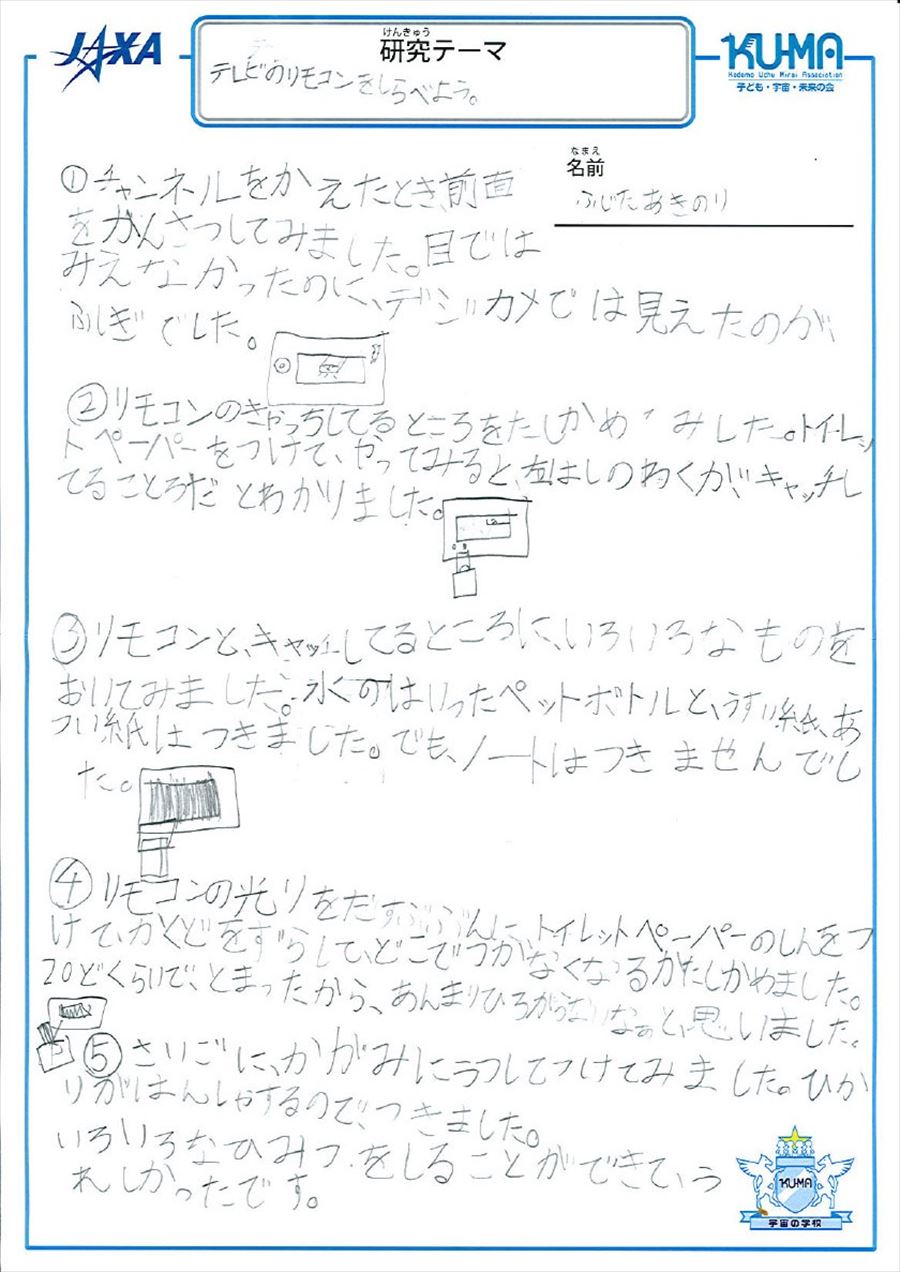 JAXA
けんきゅう
研究テーマ
テレビのリモコンをしらべよう。
KU-MA
Kodomo Uchu Mirai Association
子ども・宇宙・未来の会
なまえ
名前
ふじたあきのり
①チャンネルをかえたとき、前面
をかんさつしてみました。目では
みえなかったのに、デジカメでは見えたのが
ふしぎでした。
②リモコンのきゃっちしてるところをたしかめ みした。トイレッ
トペーパーをつけて、やってみると、左はしのわくが、キャッチし
てることろだとわかりました。
③リモコンと、キャッチしてるところに、いろいろなものを
おいてみました。水のはいったペットボトルと、うすい紙、あ
つい紙はつきました。でも、ノートはつきませんでし
た。
④リモコンの光りをだすぶぶんに、トイレットペーパーのしんをつ
けて、かくどをずらして、どこでつかなくなるかたしかめました。
20どくらいで、とまったから、あんまりひろがらないなあと、思いました。
⑤さいごに、かがみにうつしてつけてみました。ひか
りがはんしゃするので、つきました。
いろいろなひみつをしることができて、う
れしかったです。
KU-MA
宇宙の学校